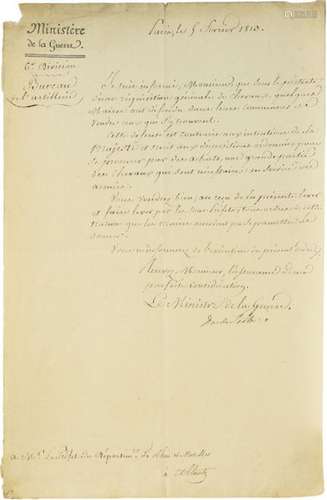 Ministère
de la Guerre.
6e Division
Bureau
de l'artillerie
Paris, le 5 février 1813.
Je suis informé, Monsieur, que dans le prétexte
d'une réquisition générale de chevaux, quelques
Maires ont défendu dans leurs communes de
vendre ceux qui s'y trouvent.
Cette défense est contraire aux intentions de Sa
Majesté et nuit aux dispositions ordonnées pour
se procurer par des achats, une grande partie
des chevaux qui sont nécessaires au service des
armées.
Vous voudrez bien, au reçu de la présente, lever
et faire lever par les Sous-Préfets, tous ordres de cette
nature que les Maires auraient pu se permettre de
donner.
Vous m'informerez de l'exécution du présent ordre.
Recevez, Monsieur, l'assurance de ma
parfaite considération,
Le Ministre de la Guerre,
A Mr. le Préfet du Département de Rhin et Moselle
à Coblentz